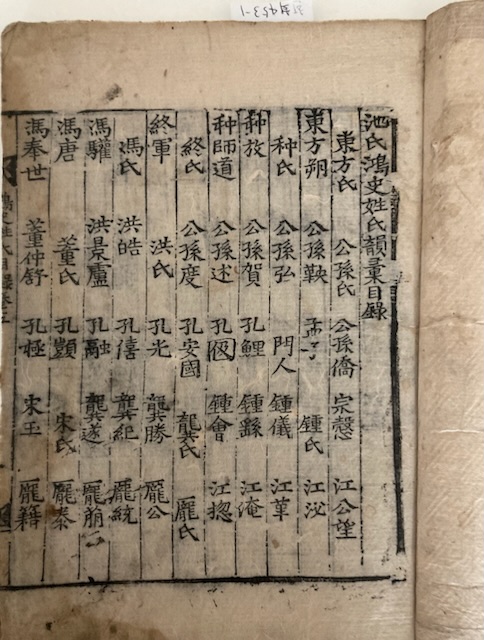 池氏鴻史姓氏韻彙目錄
東方氏 公孫氏 公孫僑 宗慤 江公望
東方朔 公孫鞅 孟子 鍾氏 江泌
种氏 公孫弘 門人 鍾儀 江革
种放 公孫賀 孔鯉 鍾繇 江淹
种師道 公孫述 孔伋 鍾會 江揔
終氏 公孫度 孔安國 龔氏 龐氏
終軍 洪氏 孔光 龔勝 龐公
馮氏 洪皓 孔僖 龔紀 龐統
馮驩 洪景廬 孔融 龔遂 龐萌
馮唐 董氏 孔顗 宋氏 龐泰
馮奉世 董仲舒 孔極 宋玉 龐籍
鴻史姓氏目錄卷之